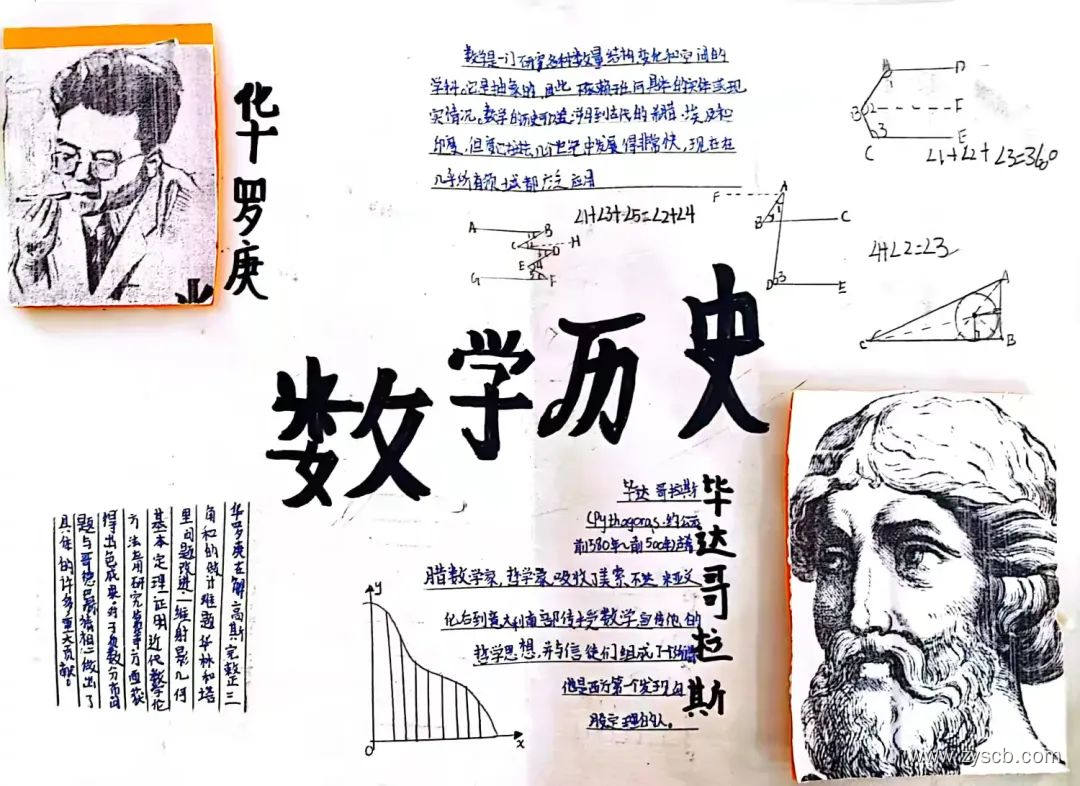 华罗庚
数学是一门研究各种数量结构变化和空间的
学科。它是抽象的,因此 依赖任何具体的实体或现
实情况。数学的历史可追溯到古代的希腊、埃及和
印度,但 几个世纪中发展得非常快,现在在
几乎所有领域都广泛应用
D
B
2
F
3
E
C
∠1+∠2+∠3=360
A
B
C
H
D
E
G
F
∠1+∠3+∠5=∠2+∠4
F
A
B
C
D
3
E
∠1+∠2=∠3
A
C
B
数学历史
毕达哥拉斯
毕达哥拉斯
(Pythagoras,约公元
前580年~前500年)古希
腊数学家,哲学家,吸收了美索不达米亚文
化后到意大利南部传授数学宣传他的
哲学思想,并与信徒们组成了一个
他是西方第一个发现勾
股定理的人。
华罗庚在解高斯完整三
角和的估计难题、华林和塔
里问题改进、一维射影几何
基本定理证明、近代数论
方法应用研究等方面获
得出色成果对于素数分布问
题与哥德巴赫猜想做出了
具体的许多重大贡献。
y
O
x
www.zyscb.com